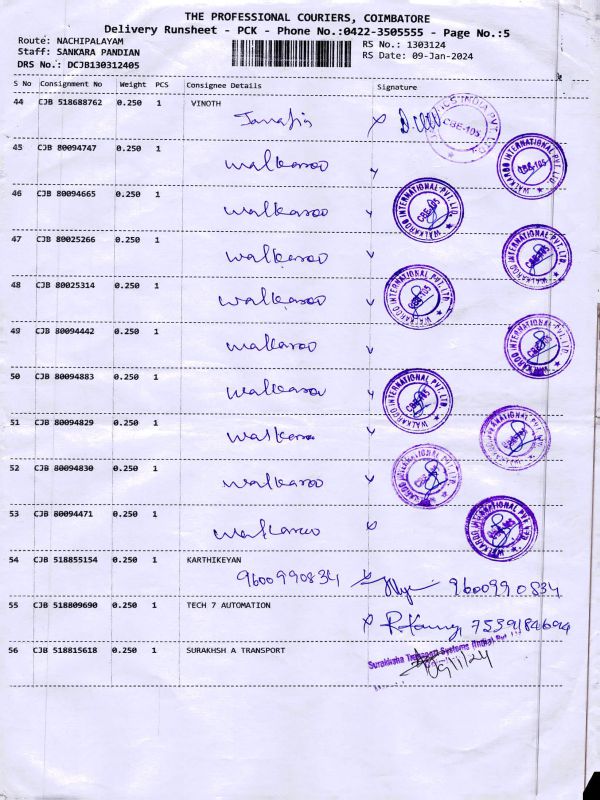 THE PROFESSIONAL COURIERS, COIMBATORE
Delivery Runsheet - PCK - Phone No.:0422-3505555 - Page No.:5
Route: NACHIPALAYAM RS No.: 1303124
Staff: SANKARA PANDIAN RS Date: 09-Jan-2024
DRS No.: DCJB130312405
S No Consignment No Weight PCS Consignee Details Signature
44 CJB 518688762 0.250 1 VINOTH
CBE-105
45 CJB 80094747 0.250 1 walkaroo WALKAROO INTERNATIONAL PVT. LTD. CBE-105
46 CJB 80094665 0.250 1 walkaroo WALKAROO INTERNATIONAL PVT. LTD. CBE-105
47 CJB 80025266 0.250 1 walkaroo WALKAROO INTERNATIONAL PVT. LTD. CBE-105
48 CJB 80025314 0.250 1 walkaroo WALKAROO INTERNATIONAL PVT. LTD. CBE-105
49 CJB 80094442 0.250 1 walkaroo WALKAROO INTERNATIONAL PVT. LTD. CBE-105
50 CJB 80094883 0.250 1 walkaroo WALKAROO INTERNATIONAL PVT. LTD. CBE-105
51 CJB 80094829 0.250 1 walkaroo WALKAROO INTERNATIONAL PVT. LTD. CBE-105
52 CJB 80094830 0.250 1 walkaroo WALKAROO INTERNATIONAL PVT. LTD. CBE-105
53 CJB 80094471 0.250 1 walkaroo WALKAROO INTERNATIONAL PVT. LTD. CBE-105
54 CJB 518855154 0.250 1 KARTHIKEYAN
9600990834 9600990834
55 CJB 518809690 0.250 1 TECH 7 AUTOMATION
7539184694
56 CJB 518815618 0.250 1 SURAKHSH A TRANSPORT
Surakhsha Transport Systems (India) Pvt. Ltd
09/1/24